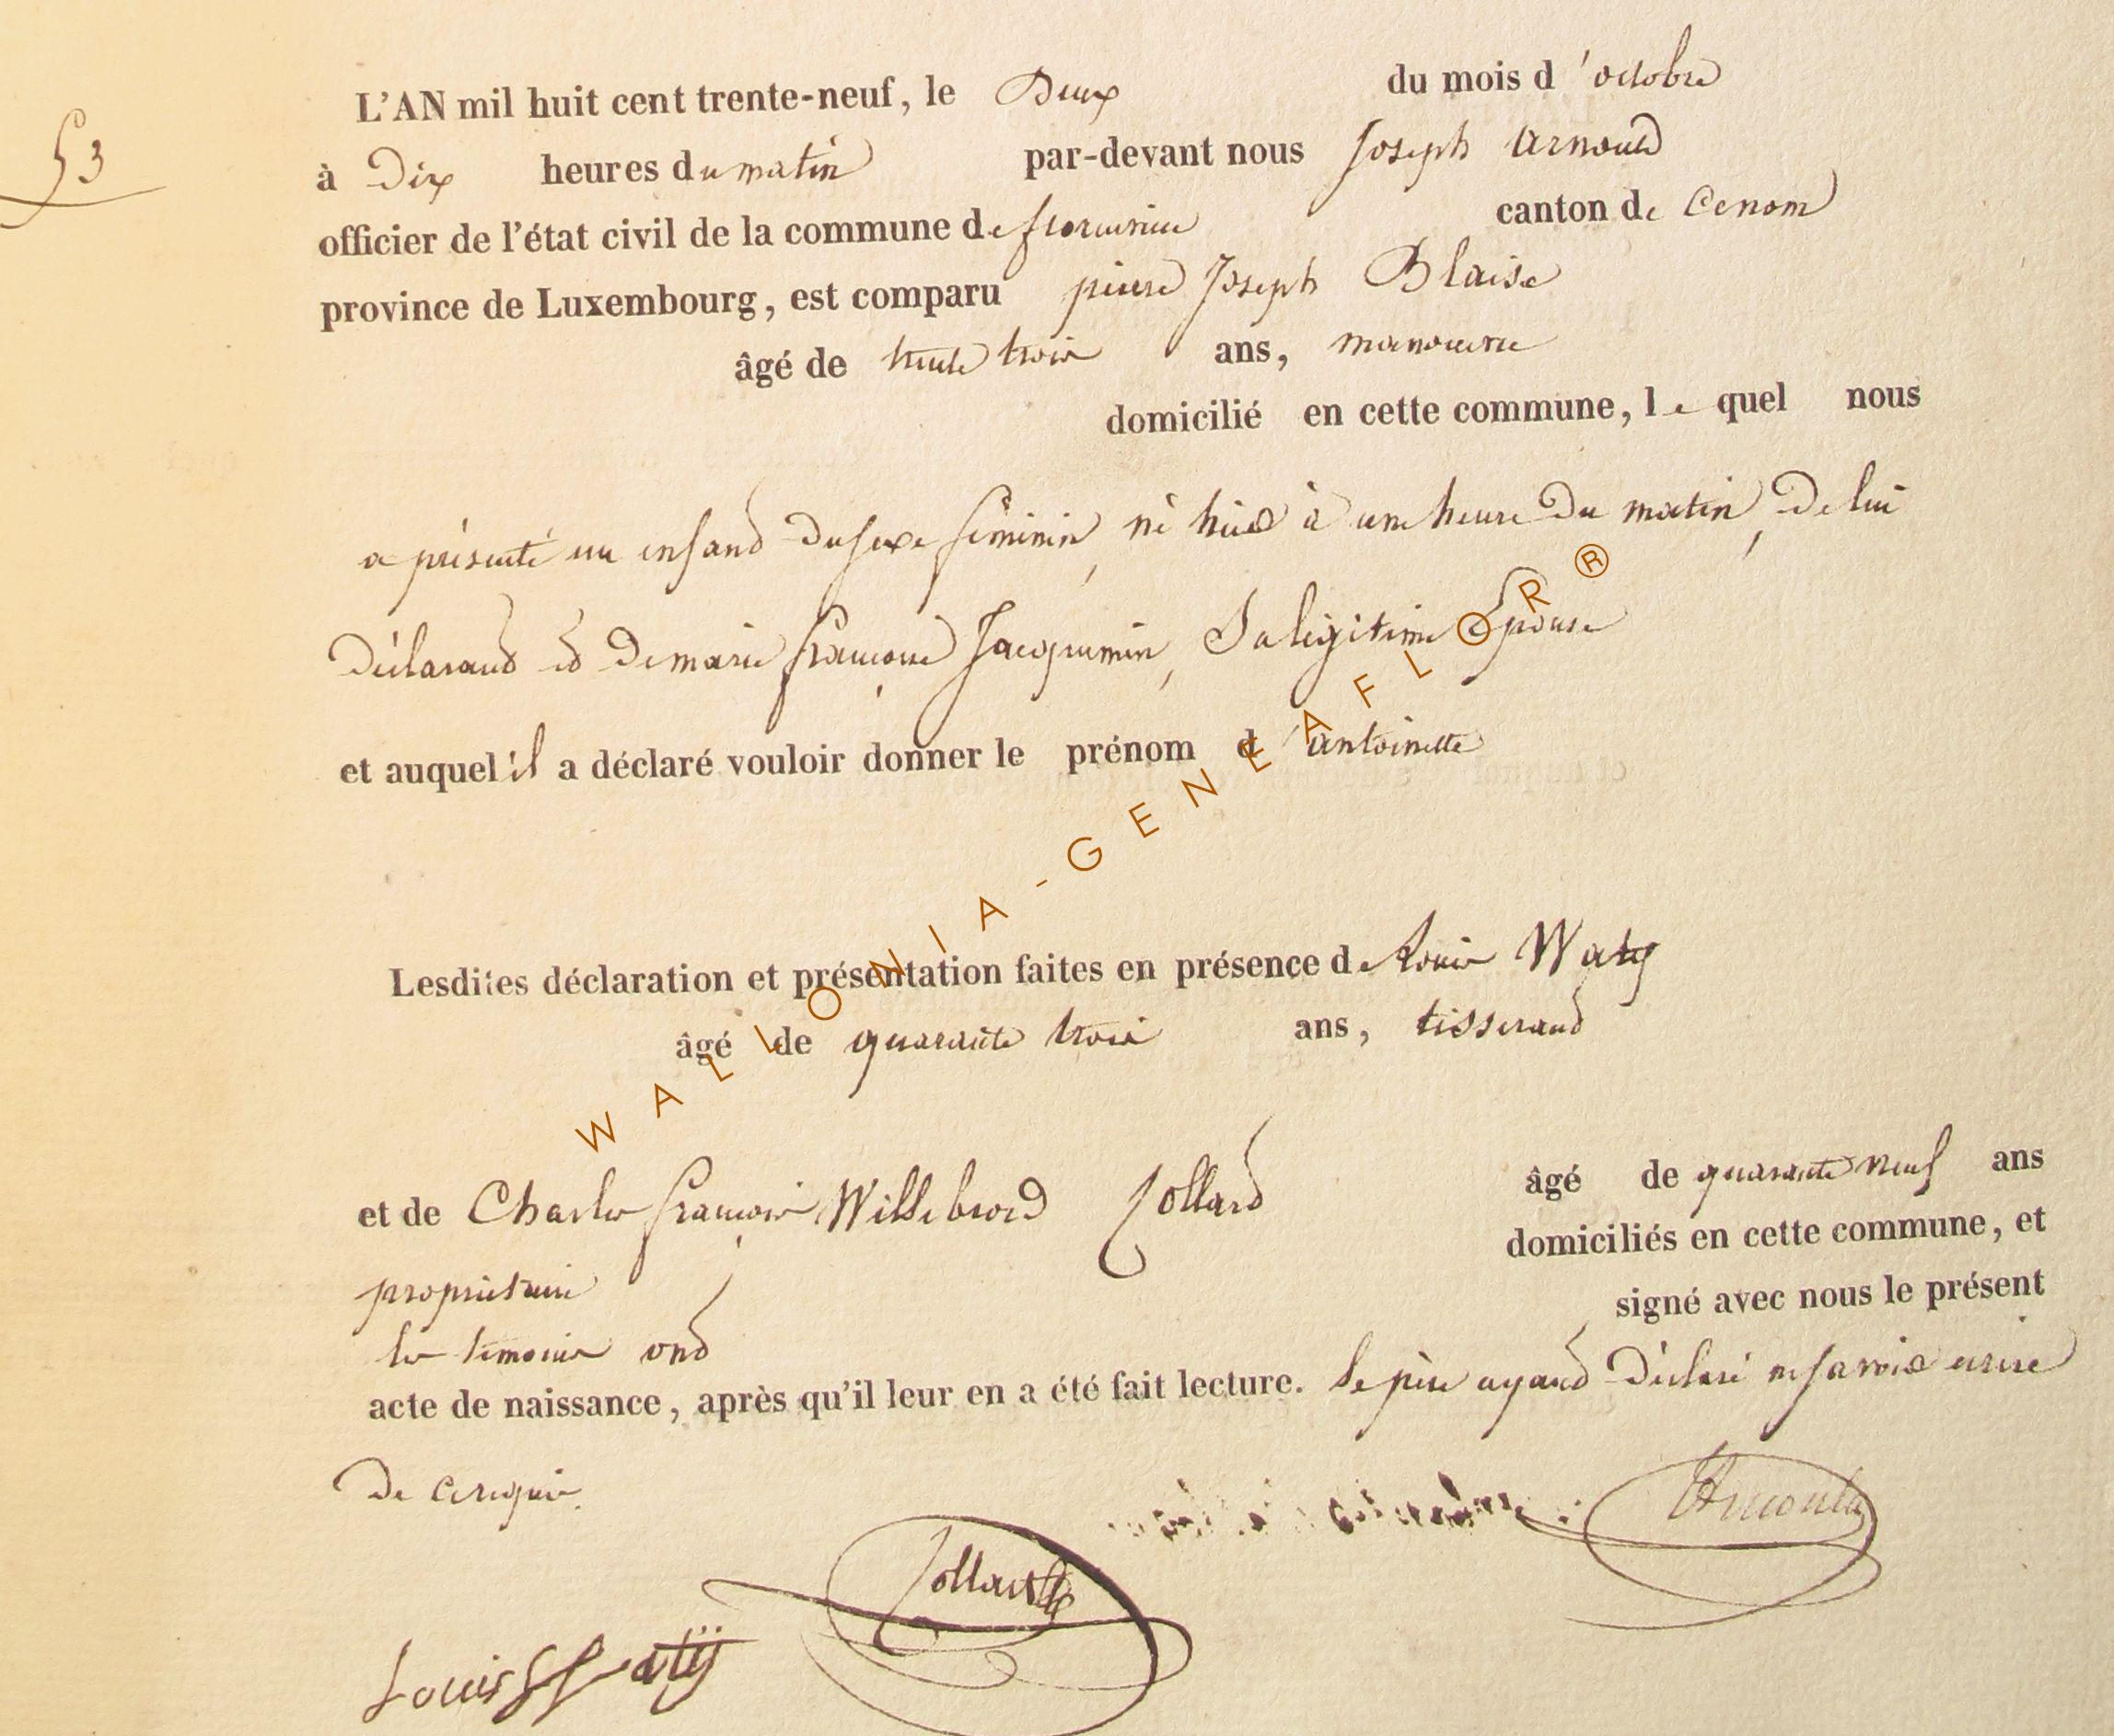 53
L'AN mil huit cent trente-neuf, le Deux du mois d'octobre
à Dix heures du matin par-devant nous Joseph Arnould
officier de l'état civil de la commune de florenville canton de
province de Luxembourg, est comparu pierre Joseph Blaise
âgé de trente trois ans, manoeuvre
domicilié en cette commune, le quel nous
a présenté un enfant du sexe féminin, né hier à une heure Du matin, De lui
Déclarant et De marie françoise Jacquemin, Sa légitime Epouse
et auquel il a déclaré vouloir donner le prénom d'antoinette
Lesdites déclaration et présentation faites en présence de Louis Waty
âgé de quarante trois ans, tisserand
et de Charles françois Willebrord Collard âgé de quarante neuf ans
propriétaire domiciliés en cette commune, et
les témoins ont signé avec nous le présent
acte de naissance, après qu'il leur en a été fait lecture. le père ayant Déclaré ne savoir écrire
De ce requis.
Arnould
Collard
Louis Watÿ
WALLONIA-GENEAFLOR®